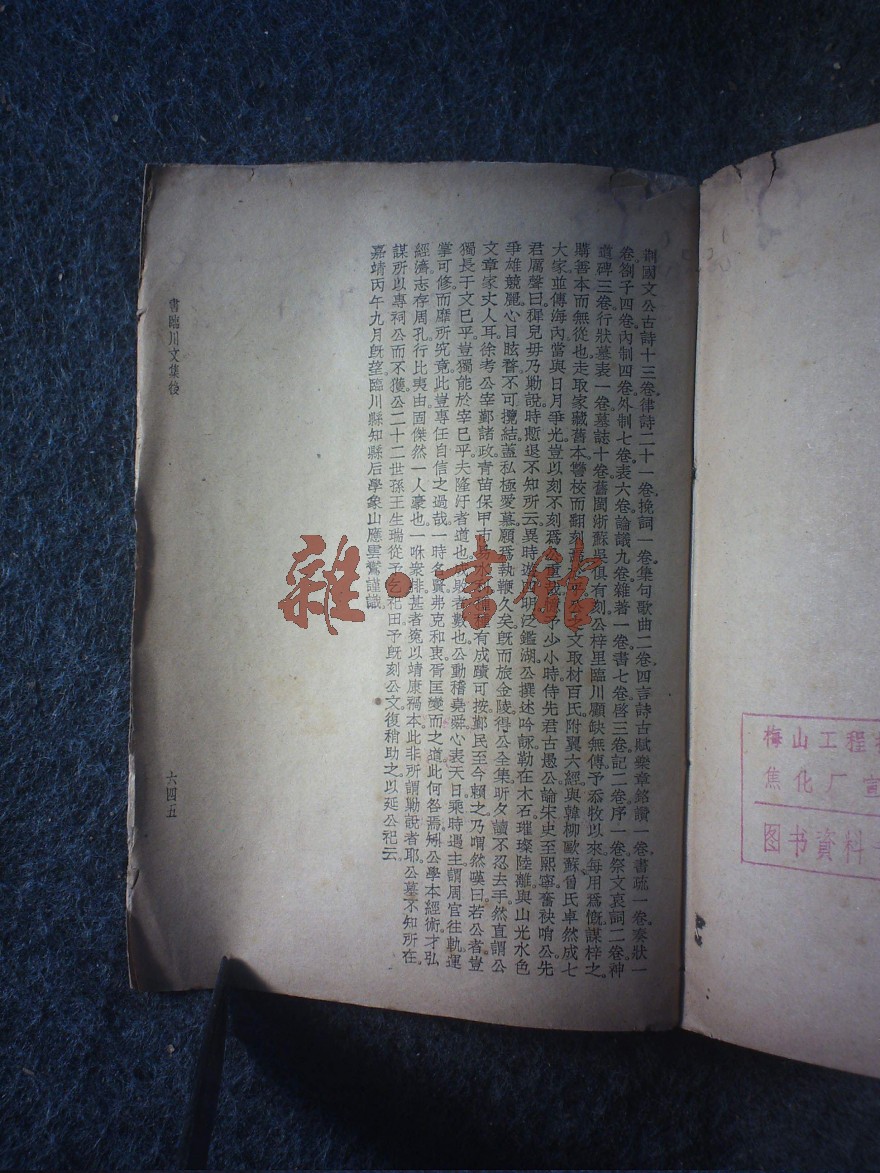 荆國文公古詩十三卷律詩二十一卷挽詞一卷集句歌曲二卷四言詩古賦樂章銘讚一卷書疏一卷奏狀一
卷劄子四卷內制四卷外制七卷表六卷論議九卷雜著一卷書七卷啓三卷記二卷序一卷祭文哀詞二卷神
道碑三卷行狀墓表一卷墓誌十卷舊閩浙蘇吳俱有刻公梓里臨川顧缺無傳予忝牧以來每用爲慨謀梓之
購善本而無從也走取家藏舊本讐校而翻刻文取材百氏附翼六經與韓柳歐蘇曾氏卓然成七
大家並傳海內當與日月爭光豈以刻不刻爲予少小時侍先君古愚公論宋史至熙寧奮袂啃公先
君厲聲曰穉兒毋乃勦說時慙退不知所云異時遊明泛鑑湖公撰述吟詠勒在木石璀璨陸離與山光水色
爭雄競麗心目眩瞀不可攬結蓋私極愛慕願爲執鞭久矣旣而旅金陵得公全集昕夕讀不忍去手然直謂公
文章家丈人耳徐考公宰鄞諸政青苗保甲市易水有成蹟可按鄞民至今賴之乃喟然嘆曰若公者豈
獨長于文巳乎豈獨能於宰巳乎夫隆汙者道也敗者數也公動稽堯舜心表天日乘時遇主謂周官往軌運
掌可修而靡所究竟此豈專任自信之過哉一時名賢弗克和衷胥匡變而之道此何咎焉矧公學本經術才弘
經濟志存周孔行比夷由固傑然一人豪也一咻衆排甚者寃以靖康禍本此非所謂勦說者耶公墓不知所在
謀所以專祠公而不獲公二十二世孫王生瑞從予乞祀田予旣刻公文復稍助之以延公祀云
嘉靖丙午九月旣望臨川縣知縣后學象山應雲鸑謹識
書臨川文集後
六四五
雜·書館
梅山工程
焦化厂
图书資料